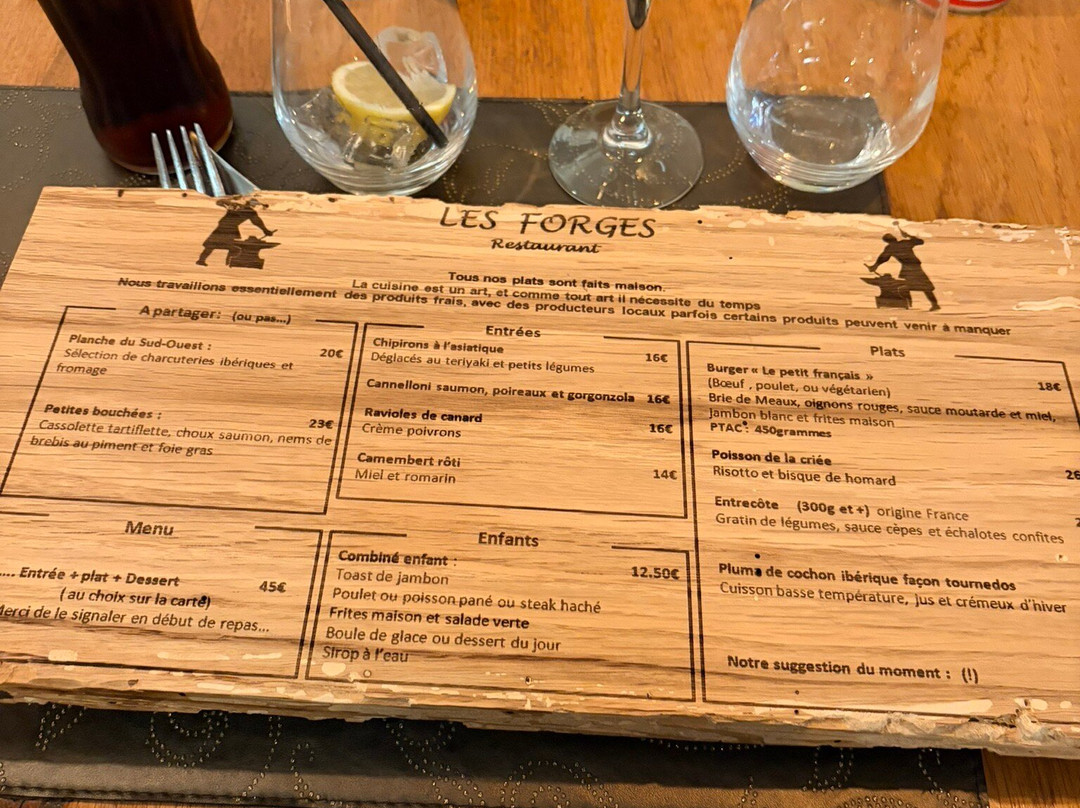 LES FORGES
Restaurant
Tous nos plats sont faits maison.
La cuisine est un art, et comme tout art il nécessite du temps
Nous travaillons essentiellement des produits frais, avec des producteurs locaux parfois certains produits peuvent venir à manquer
A partager: (ou pas...)
Planche du Sud-Ouest : 20€
Sélection de charcuteries ibériques et
fromage
Petites bouchées : 23€
Cassolette tartiflette, choux saumon, nems de
brebis au piment et foie gras
Entrées
Chipirons à l'asiatique 16€
Déglacés au teriyaki et petits légumes
Cannelloni saumon, poireaux et gorgonzola 16€
Ravioles de canard 16€
Crème poivrons
Camembert rôti 14€
Miel et romarin
Plats
Burger « Le petit français » 18€
(Bœuf , poulet, ou végétarien)
Brie de Meaux, oignons rouges, sauce moutarde et miel,
Jambon blanc et frites maison
PTAC : 450grammes
Poisson de la criée
Risotto et bisque de homard
Entrecôte (300g et +) origine France
Gratin de légumes, sauce cèpes et échalotes confites
Pluma de cochon ibérique façon tournedos
Cuisson basse température, jus et crémeux d'hiver
Notre suggestion du moment : (!)
Menu
.... Entrée + plat + Dessert 45€
(au choix sur la carte)
Merci de le signaler en début de repas...
Enfants
Combiné enfant : 12.50€
Toast de jambon
Poulet ou poisson pané ou steak haché
Frites maison et salade verte
Boule de glace ou dessert du jour
Sirop à l'eau